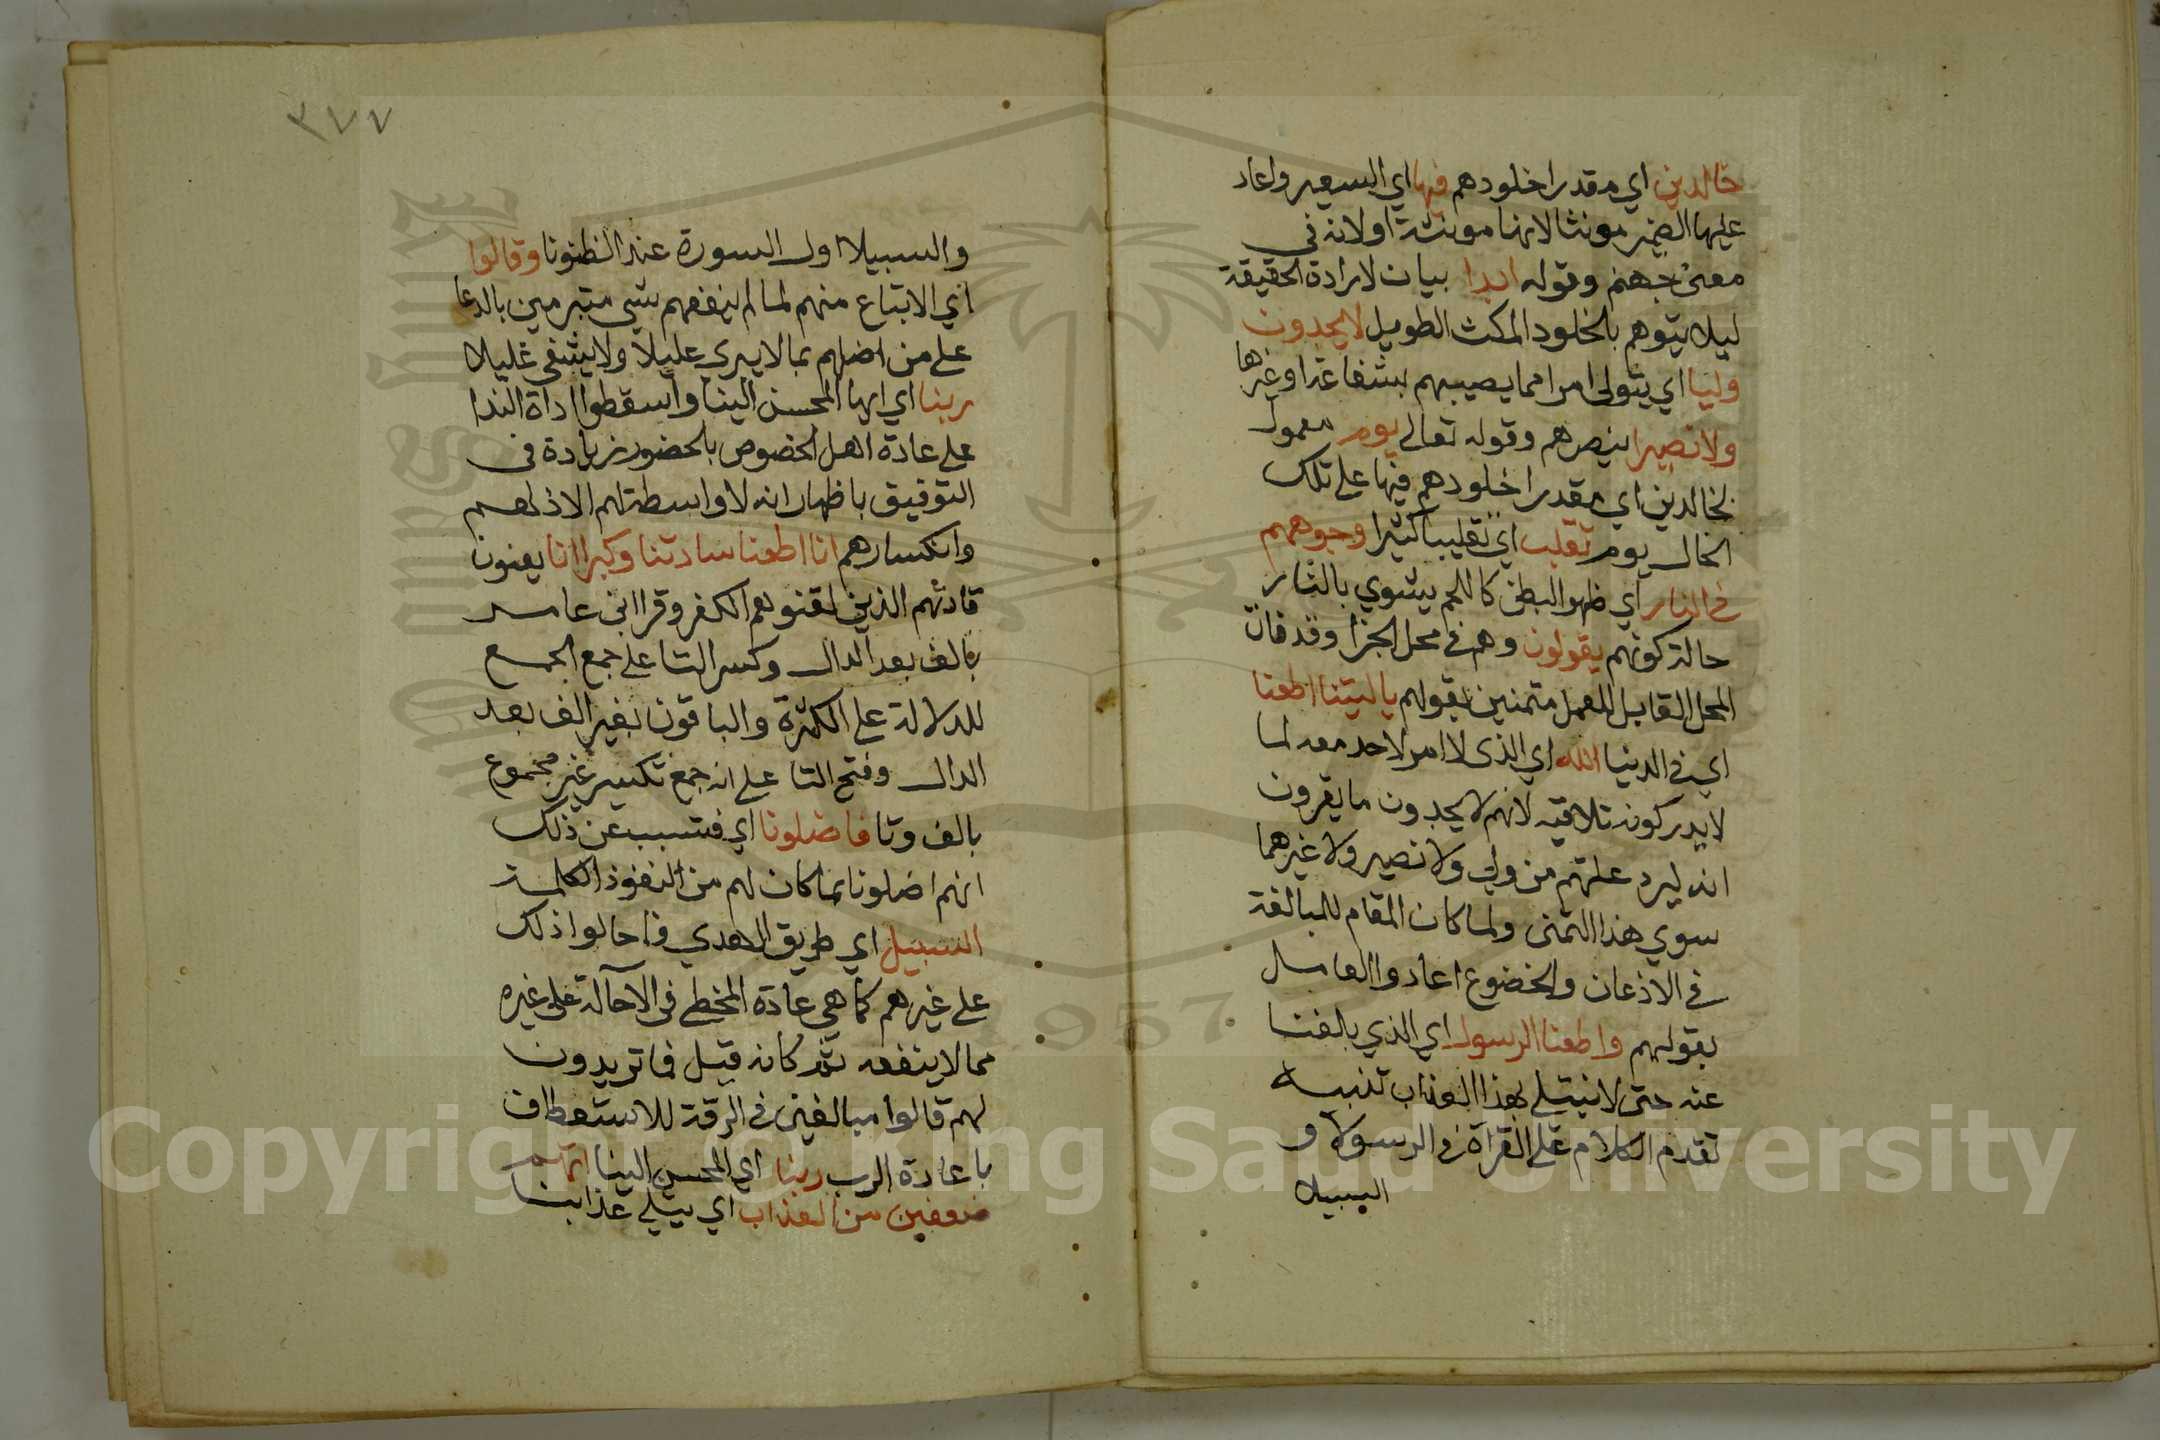 خالدين اي مقدرا خلودهم فيها اي السعير واعاد
عليها الضمير مونثا لانها مونثة او لانه في
معنى جهنم وقوله ابدا بيان لارادة الحقيقة
ليلا يتوهم بالخلود المكث الطويل لا يجدون
وليا اي يتولى امرا مما يصيبهم بشفاعة او غيرها
ولا نصيرا ينصرهم وقوله تعالى يوم معمول
لخالدين اي مقدرا خلودهم فيها على تلك
الحال يوم تقلب اي تقليبا كثيرا وجوههم
في النار اي ظهرا لبطن كاللحم يشوي بالنار
حالة كونهم يقولون وهم في محل الجزا وقد فات
المحل القابل للعمل متمنين بقولهم يا ليتنا اطعنا
اي في الدنيا الله اي الذي لا امر لاحد معه لما
لا يدركون تلافيه لانهم لا يجدون ما يقرون
انه ليرد غلتهم من ولي ولا نصير ولا غيرهما
سوي هذا التمني ولما كان المقام للمبالغة
في الاذعان والخضوع اعادوا العامل
بقولهم واطعنا الرسولا اي الذي بلغنا
عنه حتى لا نبتلى بهذا العذاب تنبيه
تقدم الكلام على القراة في الرسولا و
السبيلا
٣٧٧
والسبيلا اول السورة عند الظنونا وقالوا
اي الاتباع منهم لما لم ينفعهم شي متبرمين بالدعا
على من اضلهم بما لا يبري عليلا ولا يشفي غليلا
ربنا اي ايها المحسن الينا واسقطوا اداة الندا
على عادة اهل الخصوص بالحضور زيادة في
التوفيق باظهار انه لا واسطة لهم الا ذلهم
وانكسارهم انا اطعنا سادتنا وكبرانا يعنون
قادتهم الذين لقنوهم الكفر وقرا ابن عامر
بالف بعد الدال وكسر التا على جمع الجمع
للدلالة على الكثرة والباقون بغير الف بعد
الدال وفتح التا على انه جمع تكسير غير مجموع
بالف وتا فاضلونا اي فتسبب عن ذلك
انهم اضلونا بما كان لهم من النفوذ الكلمة
السبيل اي طريق الهدي فاحالوا ذلك
على غيرهم كما هي عادة المخطي في الاحالة على غيره
مما لا ينفعه ثم كانه قيل فما تريدون
لهم قالوا مبالغين في الرقة للاستعطاف
باعادة الرب ربنا اي المحسن الينا اتهم
ضعفين من العذاب اي مثلي عذابنا
1957
Copyright © King Saud University